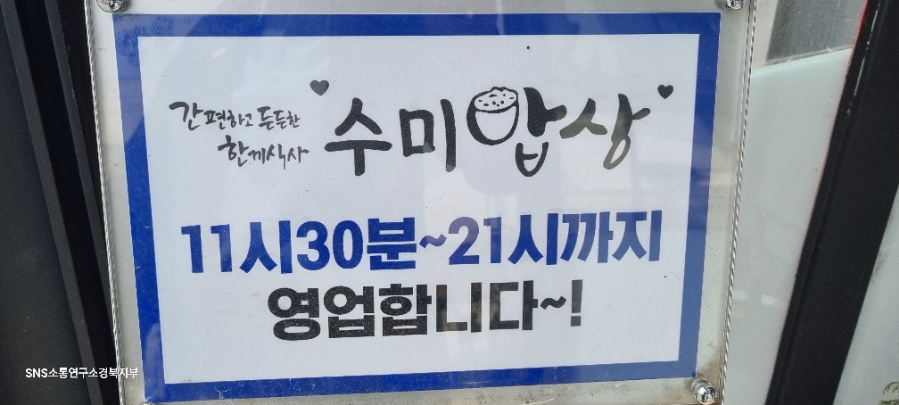 간편하고 든든한
한께식사
수미밥상
11시30분~21시까지
영업합니다~!
SNS소통연구소경북지부